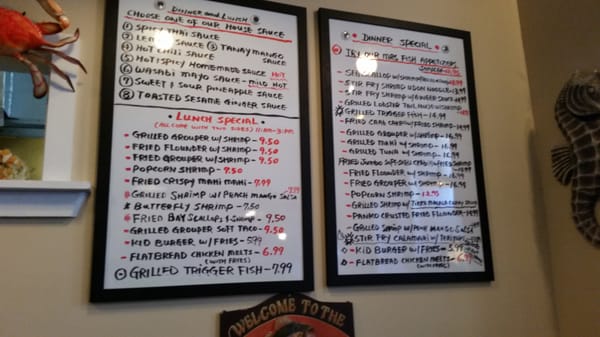 DINNER and LUNCH
CHOOSE ONE OF OUR HOUSE SAUCE
① SPICY THAI SAUCE
② LEMON SAUCE ③ TANAY MANGO SAUCE
④ HOT CHILI SAUCE
⑤ HOT/SPICY HOMEMADE SAUCE HOT
⑥ WASABI MAYO SAUCE - MILD HOT
⑦ SWEET & SOUR PINEAPPLE SAUCE
⑧ TOASTED SESAME GINGER SAUCE
LUNCH SPECIAL
(ALL COME WITH TWO SIDES) 11:AM-3:PM
- GRILLED GROUPER W/SHRIMP - 9.50
- FRIED FLOUNDER W/SHRIMP - 9.50
- FRIED GROUPER W/SHRIMP - 9.50
- POPCORN SHRIMP - 7.50
- FRIED CRISPY MAHI MAHI - 7.99
GRILLED SHRIMP W/PEACH MANGO SALSA 7.99
BUTTERFLY SHRIMP - 7.50
FRIED BAY SCALLOPS & SHRIMP - 9.50
- GRILLED GROUPER SOFT TACO - 9.50
- KID BURGER W/FRIES - 5.99
- FLATBREAD CHICKEN MELTS - 6.99
(WITH FRIES)
GRILLED TRIGGER FISH - 7.99
DINNER SPECIAL
TRY OUR MRS. FISH APPETIZERS
STIR FRY SHRIMP UDON NOODLE
STIR FRY SHRIMP W/GINGER SAUCE
GRILLED LOBSTER TAIL
GRILLED TRIGGER FISH - 14.99
FRIED CRAB CAKE W/FRIED SHRIMP
- GRILLED GROUPER W/SHRIMP - 16.99
- GRILLED MAHI W/SHRIMP - 16.99
- GRILLED TUNA W/SHRIMP - 16.99
FRIED JUMBO SOFT SHELL CRAB
- FRIED FLOUNDER W/SHRIMP - 16.99
- FRIED GROUPER W/SHRIMP - 16.99
- POPCORN SHRIMP - 12.95
- GRILLED SHRIMP W/
- PANKO CRUSTED FRIED FLOUNDER
GRILLED SHRIMP W/PEACH MANGO SALSA
STIR FRY CALAMARI W/TERIYAKI
KID BURGER W/FRIES
FLATBREAD CHICKEN MELTS
(WITH FRIES)
WELCOME TO THE